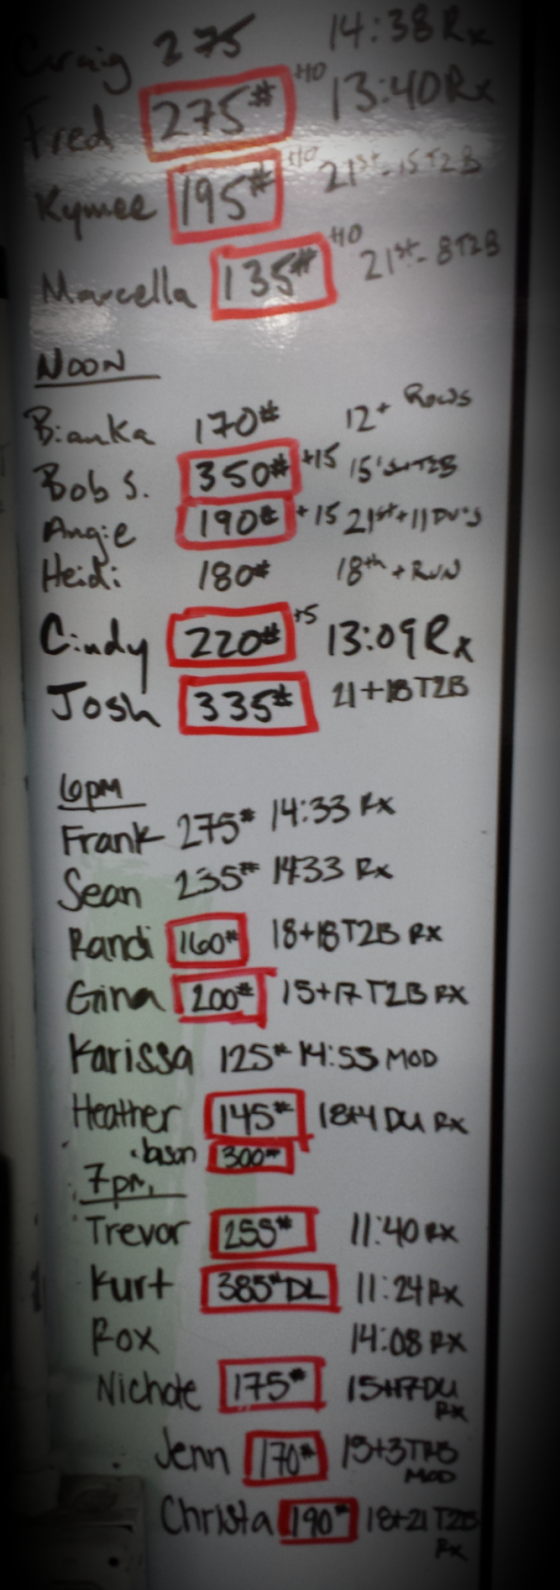 Craig 275 14:38 Rx
Fred 275# +10 13:40 Rx
Kymee 195# +10 21st - 15 T2B
Marcella 135# +10 21st - 8 T2B
NOON
Bianka 170# 12+ Rows
Bob S. 350# +15 15's+T2B
Angie 190# +15 21st+11 DU's
Heidi 180# 18th + RUN
Cindy 220# +5 13:09 Rx
Josh 335# 21+18 T2B
6pm
Frank 275# 14:33 Rx
Sean 235# 1433 Rx
Randi 160# 18+18 T2B RX
Gina 200# 15+17 T2B RX
Karissa 125# 14:55 MOD
Heather 145# 18+4 DU Rx
Jason 300#
7pm
Trevor 255# 11:40 RX
Kurt 385# DL 11:24 RX
Rox 14:08 RX
Nichole 175# 15+17 DU
RX
Jenn 170# 15+3 T2B
MOD
Christa 190# 18+21 T2B
Rx